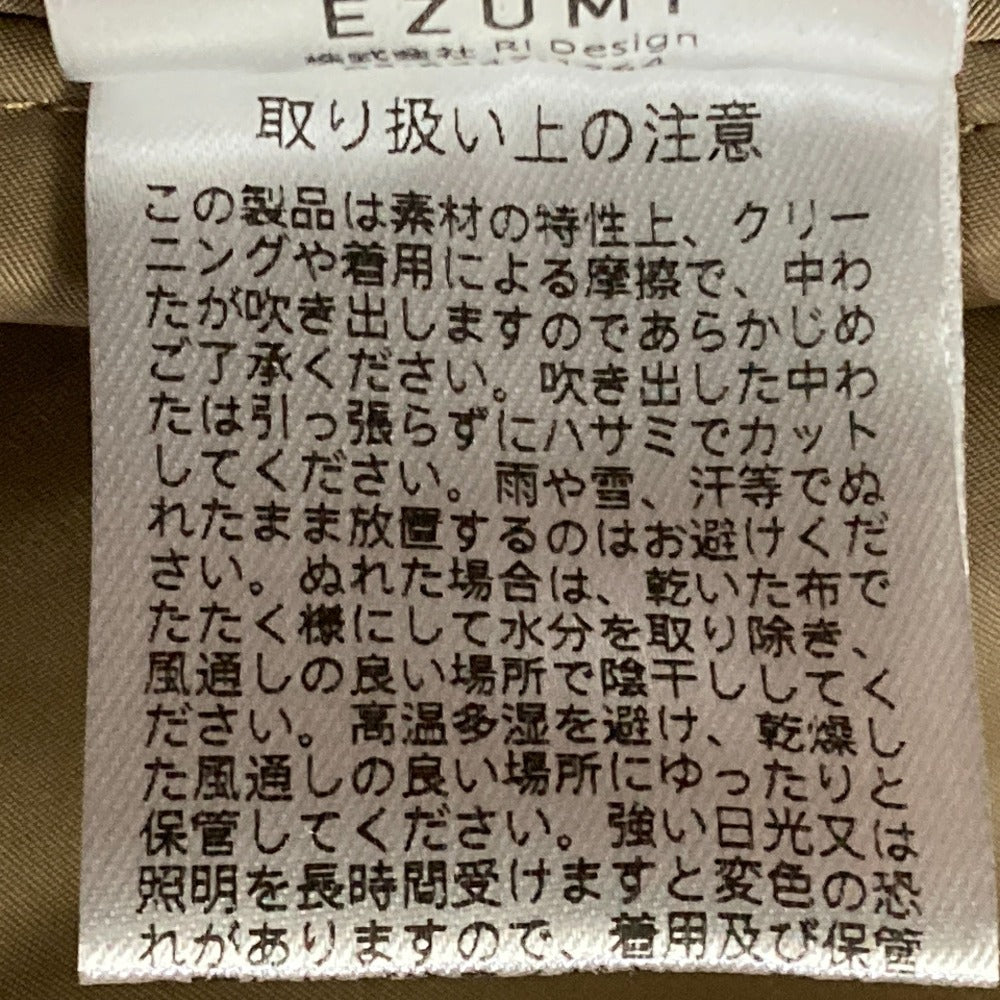 EZUMi
株式会社 RI Design
取り扱い上の注意
この製品は素材の特性上、クリー
ニングや着用による摩擦で、中わ
たが吹き出しますのであらかじめ
ご了承ください。吹き出した中わ
たは引っ張らずにハサミでカット
してください。雨や雪、汗等でぬ
れたまま放置するのはお避けくだ
さい。ぬれた場合は、乾いた布で
たたく様にして水分を取り除き、
風通しの良い場所で陰干ししてく
ださい。高温多湿を避け、乾燥し
た風通しの良い場所にゆったりと
保管してください。強い日光又は
照明を長時間受けますと変色の恐
れがありますので、着用及び保管